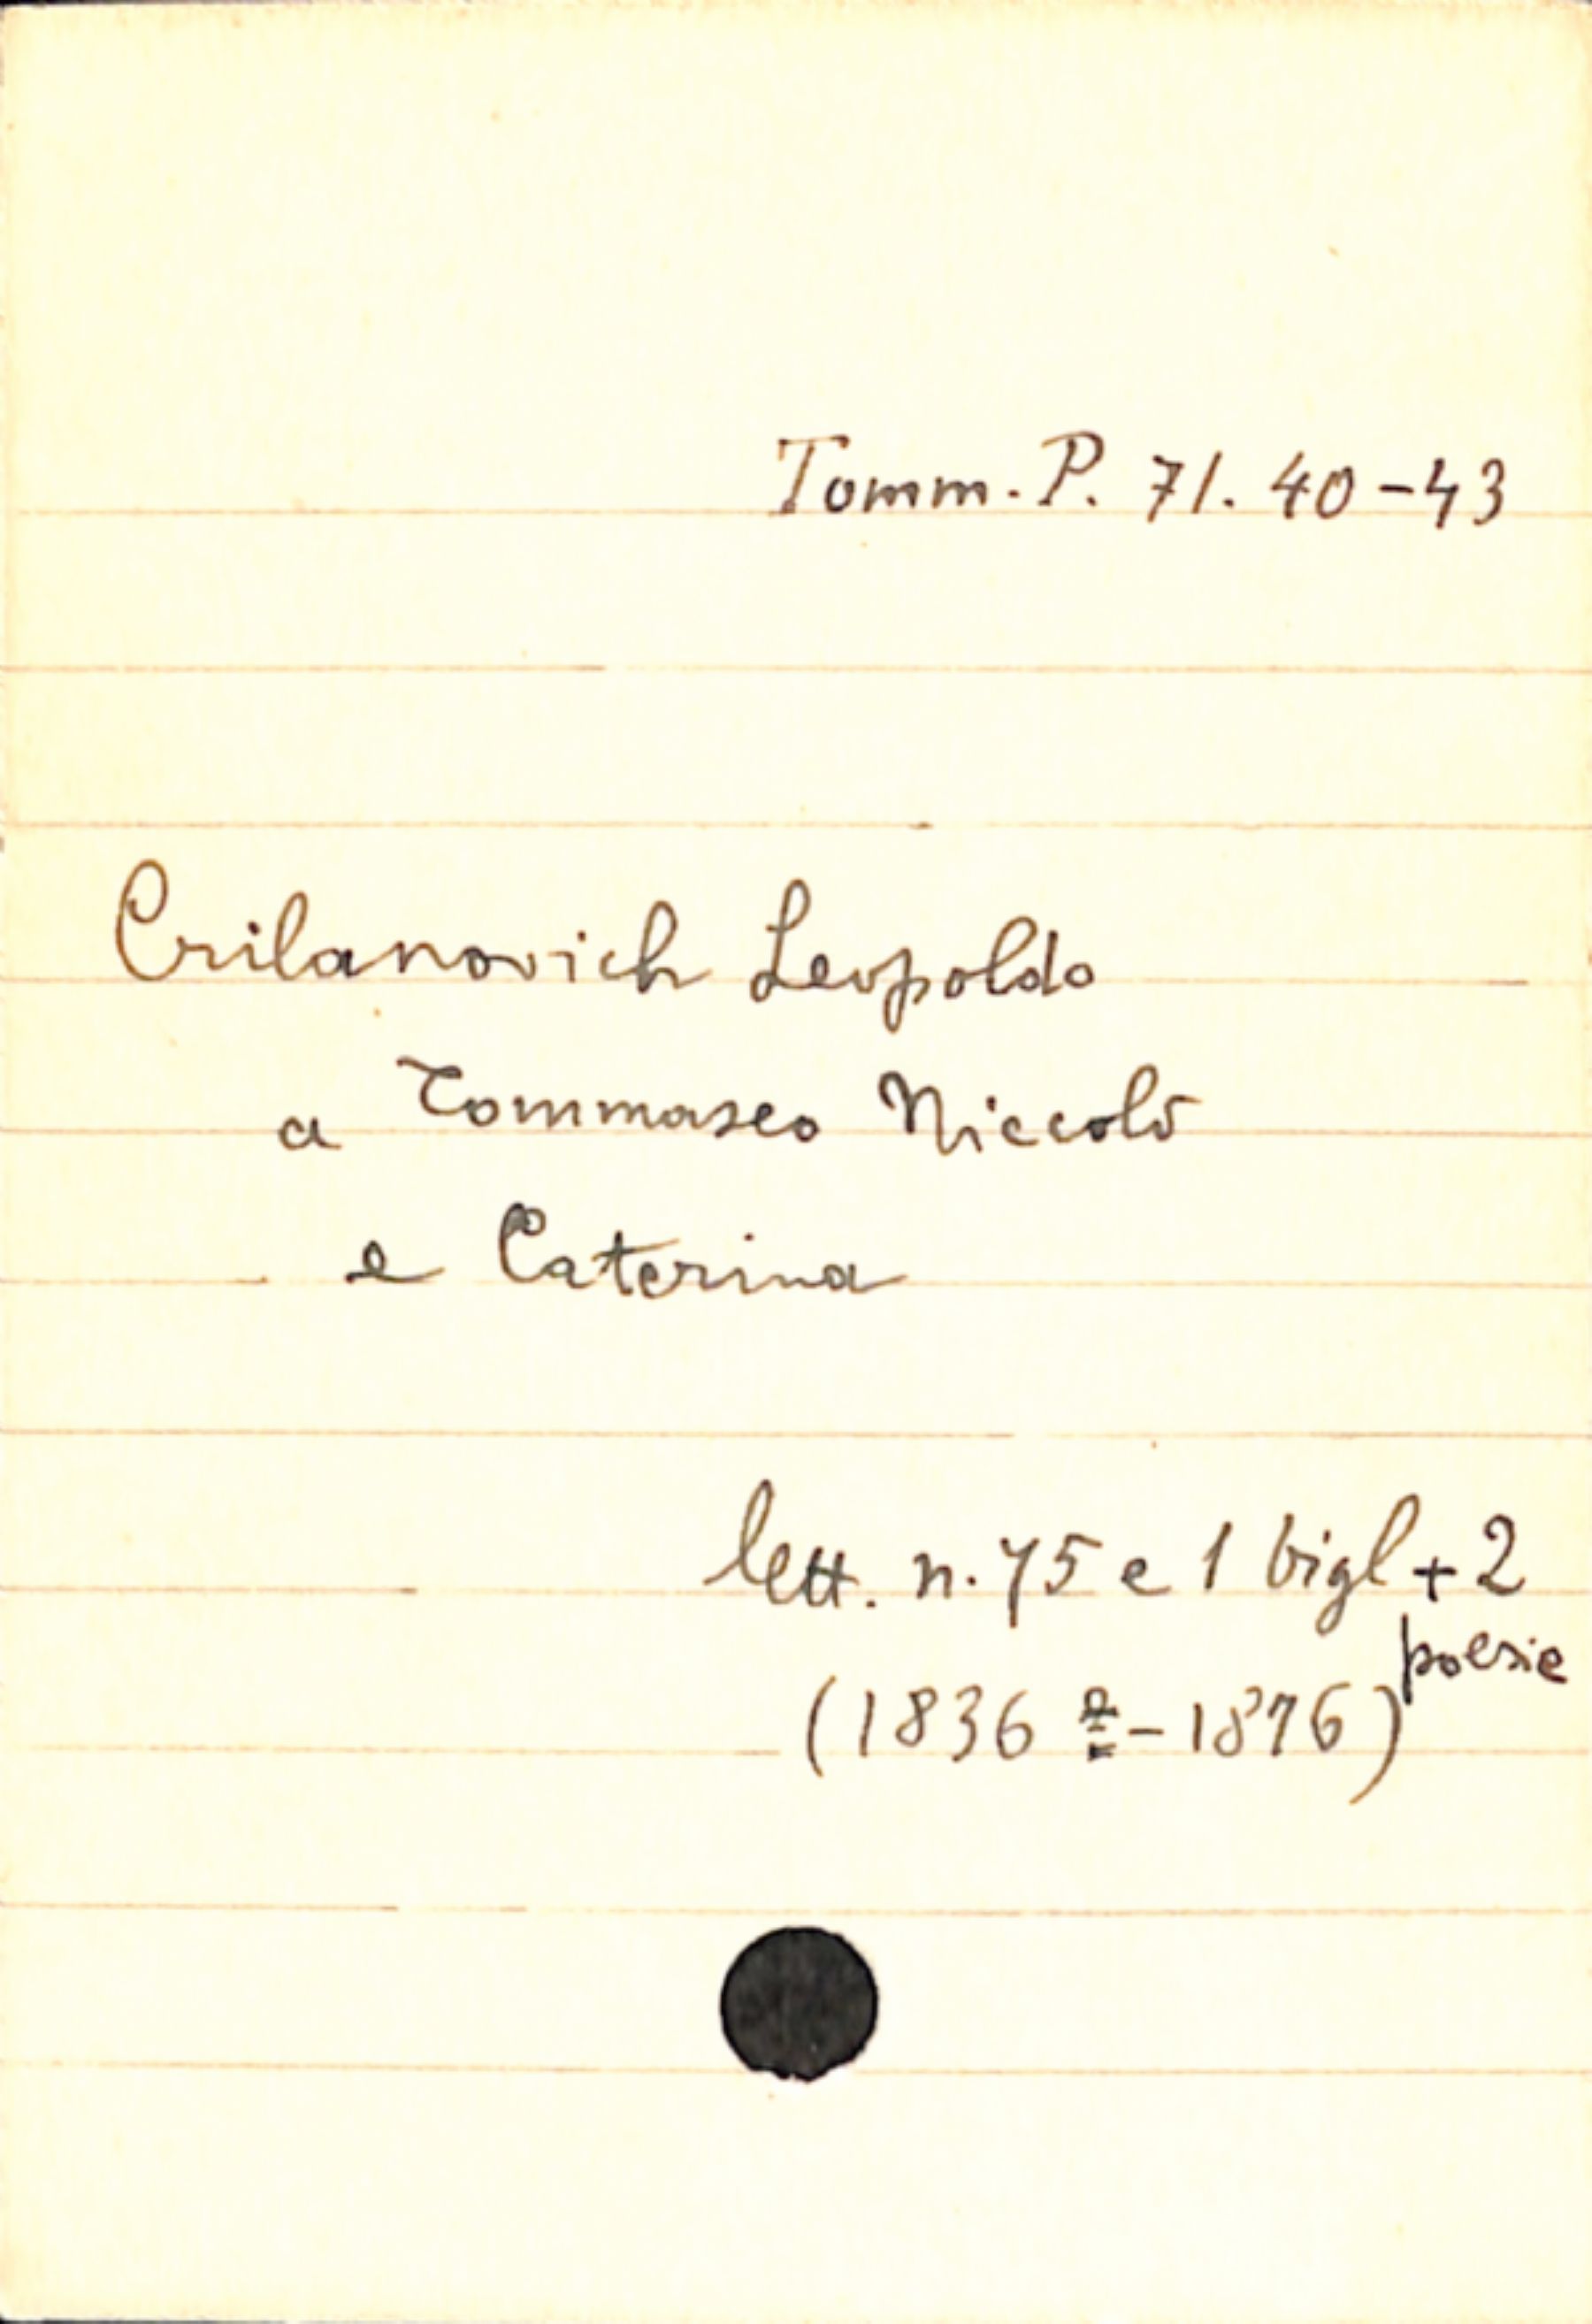 Tomm. P. 71. 40-43
Crilanovich Leopoldo
a Tommaseo Niccolò
e Caterina
lett. n. 75 e 1 bigl + 2
poesie
(1836 - 1876)